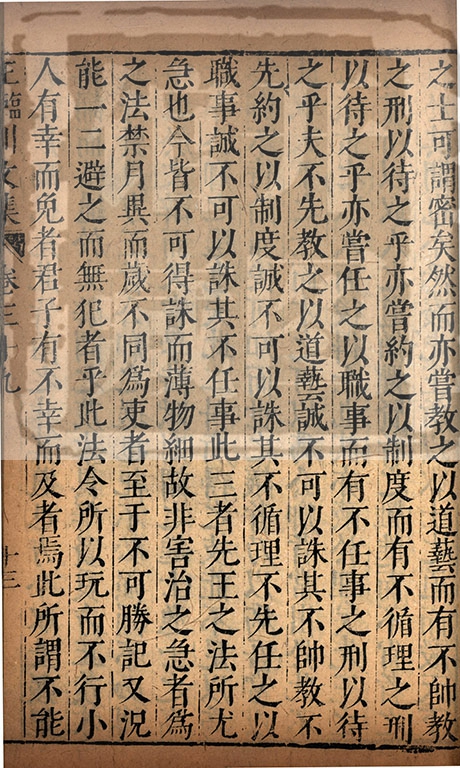 之士可謂密矣然而亦嘗教之以道藝而有不帥教
之刑以待之乎亦嘗約之以制度而有不循理之刑
以待之乎亦嘗任之以職事而有不任事之刑以待
之乎夫不先教之以道藝誠不可以誅其不帥教不
先約之以制度誠不可以誅其不循理不先任之以
職事誠不可以誅其不任事此三者先王之法所尤
急也今皆不可得誅而薄物細故非害治之急者爲
之法禁月異而歲不同爲吏者至于不可勝記又况
能一二避之而無犯者乎此法令所以玩而不行小
人有幸而免者君子有不幸而及者焉此所謂不能
王臨川文集 卷三十九 十三